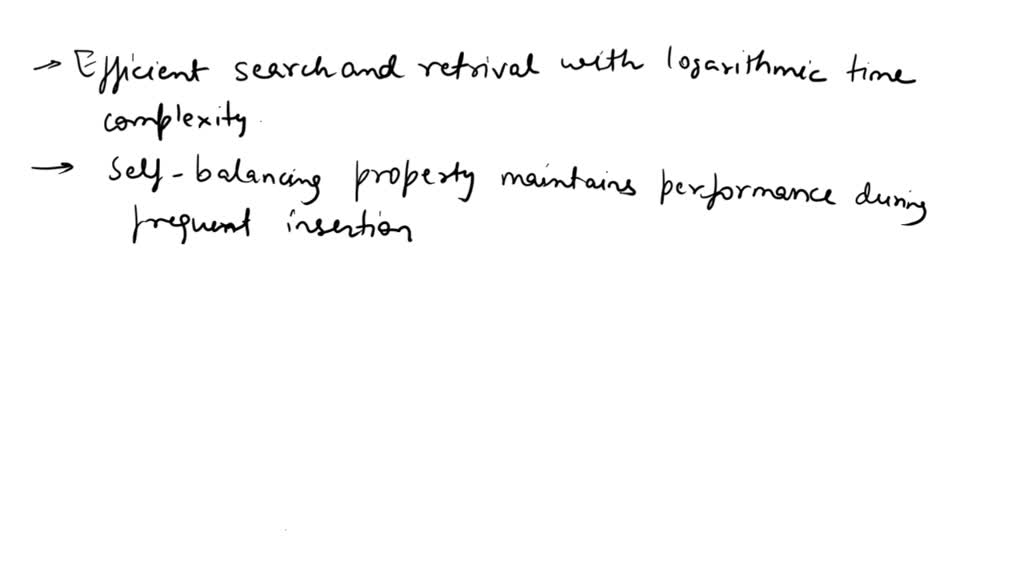 → Efficient search and retrival with logarithmic time
complexity
→ Self-balancing property maintains performance during
frequent insertion